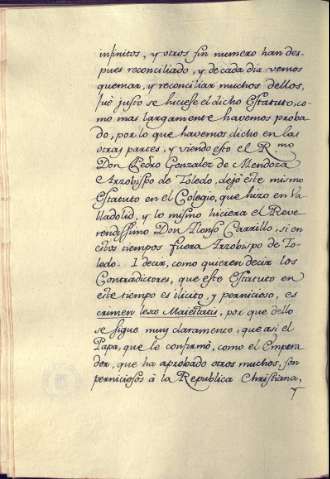 infinitos, y otros sin numero han des-
pues reconciliado, y de cada dia vemos
quemar, y reconciliar muchos dellos,
fué justo se hiciese el dicho Estatuto, co-
mo mas largamente havemos proba-
do, por lo que havemos dicho en las
otras partes, y viendo esto el Rmo
Don Pedro Gonzalez de Mendoza
Arzobispo de Toledo, dejó este mismo
Estatuto en el Colegio, que hizo en Va-
lladolid, y lo mismo hiciera el Reve-
rendissimo Don Alonso Carrillo, si en
estos tiempos fuera Arzobispo de To-
ledo. I decir, como quieren decir los
Contradictores, que este Estatuto en
este tiempo es ilicito, y pernicioso, es
crimen lesæ Maiestatis, por que dello
se sigue muy claramente, que asi el
Papa, que le confirmó, como el Empera-
dor, que ha aprobado otros muchos, son
perniciosos á la Republica Christiana,
y